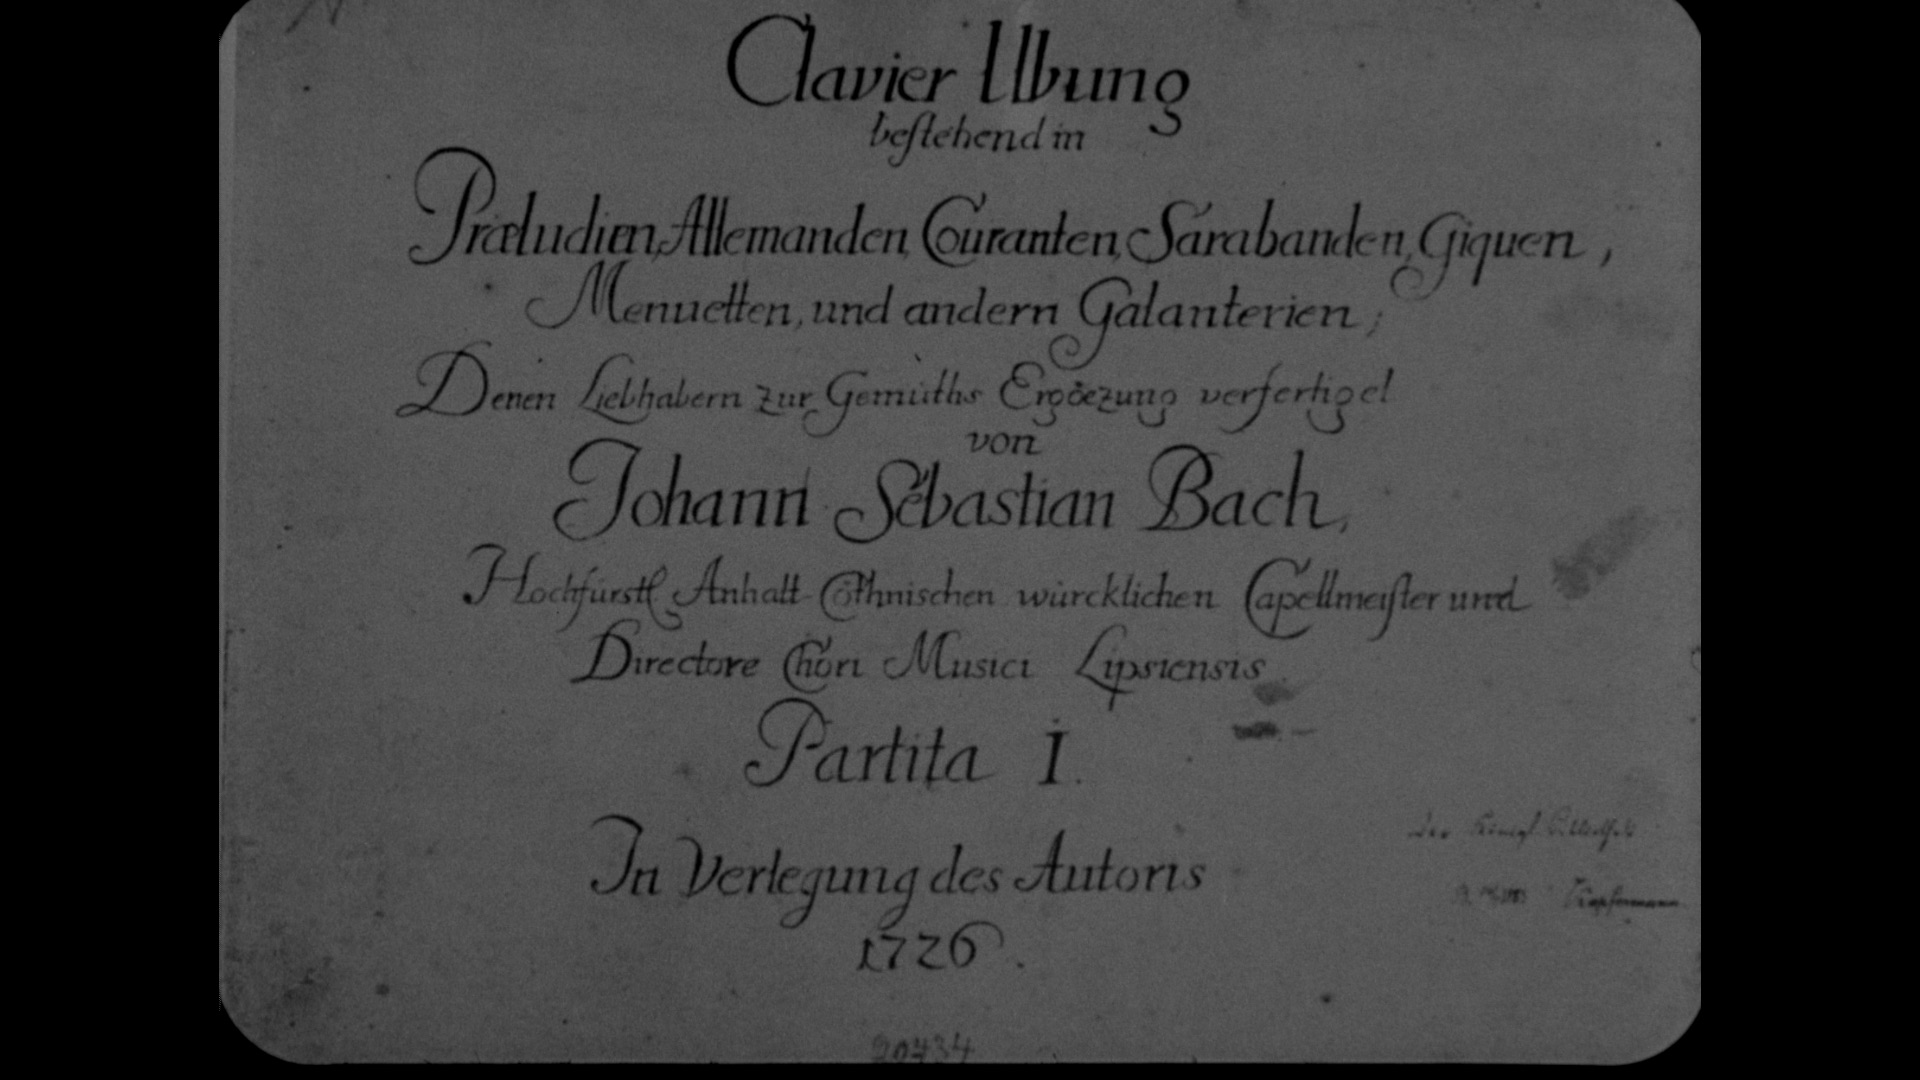 Clavier Ubung
bestehend in
Præludien, Allemanden, Couranten, Sarabanden, Giquen,
Menuetten, und andern Galanterien;
Denen Liebhabern zur Gemüths Ergoezung verfertiget
von
Johann Sebastian Bach,
Hochfürstl. Anhalt-Cöthnischen würcklichen Capellmeister und
Directore Chori Musici Lipsiensis.
Partita I.
In Verlegung des Autoris
1726.
20434